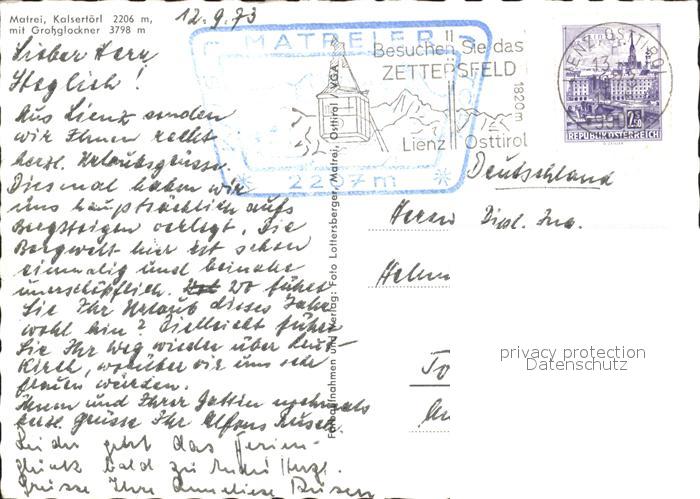 Matrei, Kalsertörl 2206 m,
mit Großglockner 3798 m
12.9.73
Lieber Herr
Steglich!
Aus Lienz senden
wir Ihnen recht
herzl. Urlaubsgrüsse.
Diesmal haben wir
uns hauptsächlich aufs
Bergsteigen verlegt. Die
Bergwelt hier ist schon
einmalig und beinahe
unerschöpflich. Wo führt
Sie Ihr Urlaub dieses Jahr
wohl hin? Vielleicht führt
Sie Ihr Weg wieder über
Kirch, worüber wir uns sehr
freuen würden.
Ihnen und Ihrer Gattin nochmals
herzl. Grüsse Ihr Alfons
Leider geht das Ferien-
glück bald zu Ende. Herzl.
Grüsse Ihre Anneliese
MATREIER
2207m
Besuchen Sie das
ZETTERSFELD
1820m
Lienz Osttirol
LIENZ, OSTTIROL
13
REPUBLIK ÖSTERREICH
Fotoaufnahmen und Verlag: Foto Lottersberger, Matrei, Osttirol VGA
Deutschland
Herrn Dipl. Ing.
Helm
To
privacy protection
Datenschutz